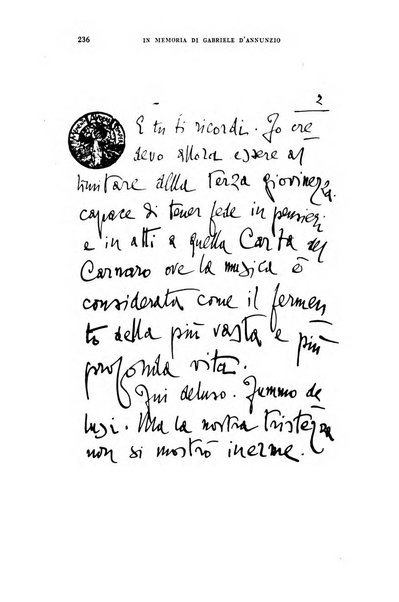 236 IN MEMORIA DI GABRIELE D'ANNUNZIO
2
E tu ti ricordi. Io cre
devo allora essere al
limitare della terza giovinezza.
capace di tener fede in pensieri
e in atti a quella Carta del
Carnaro ove la musica è
considerata come il fermen
to della più vasta e più
profonda vita.
Fui deluso. Fummo de
lusi. Ma la nostra tristezza
non si mostrò inerme.